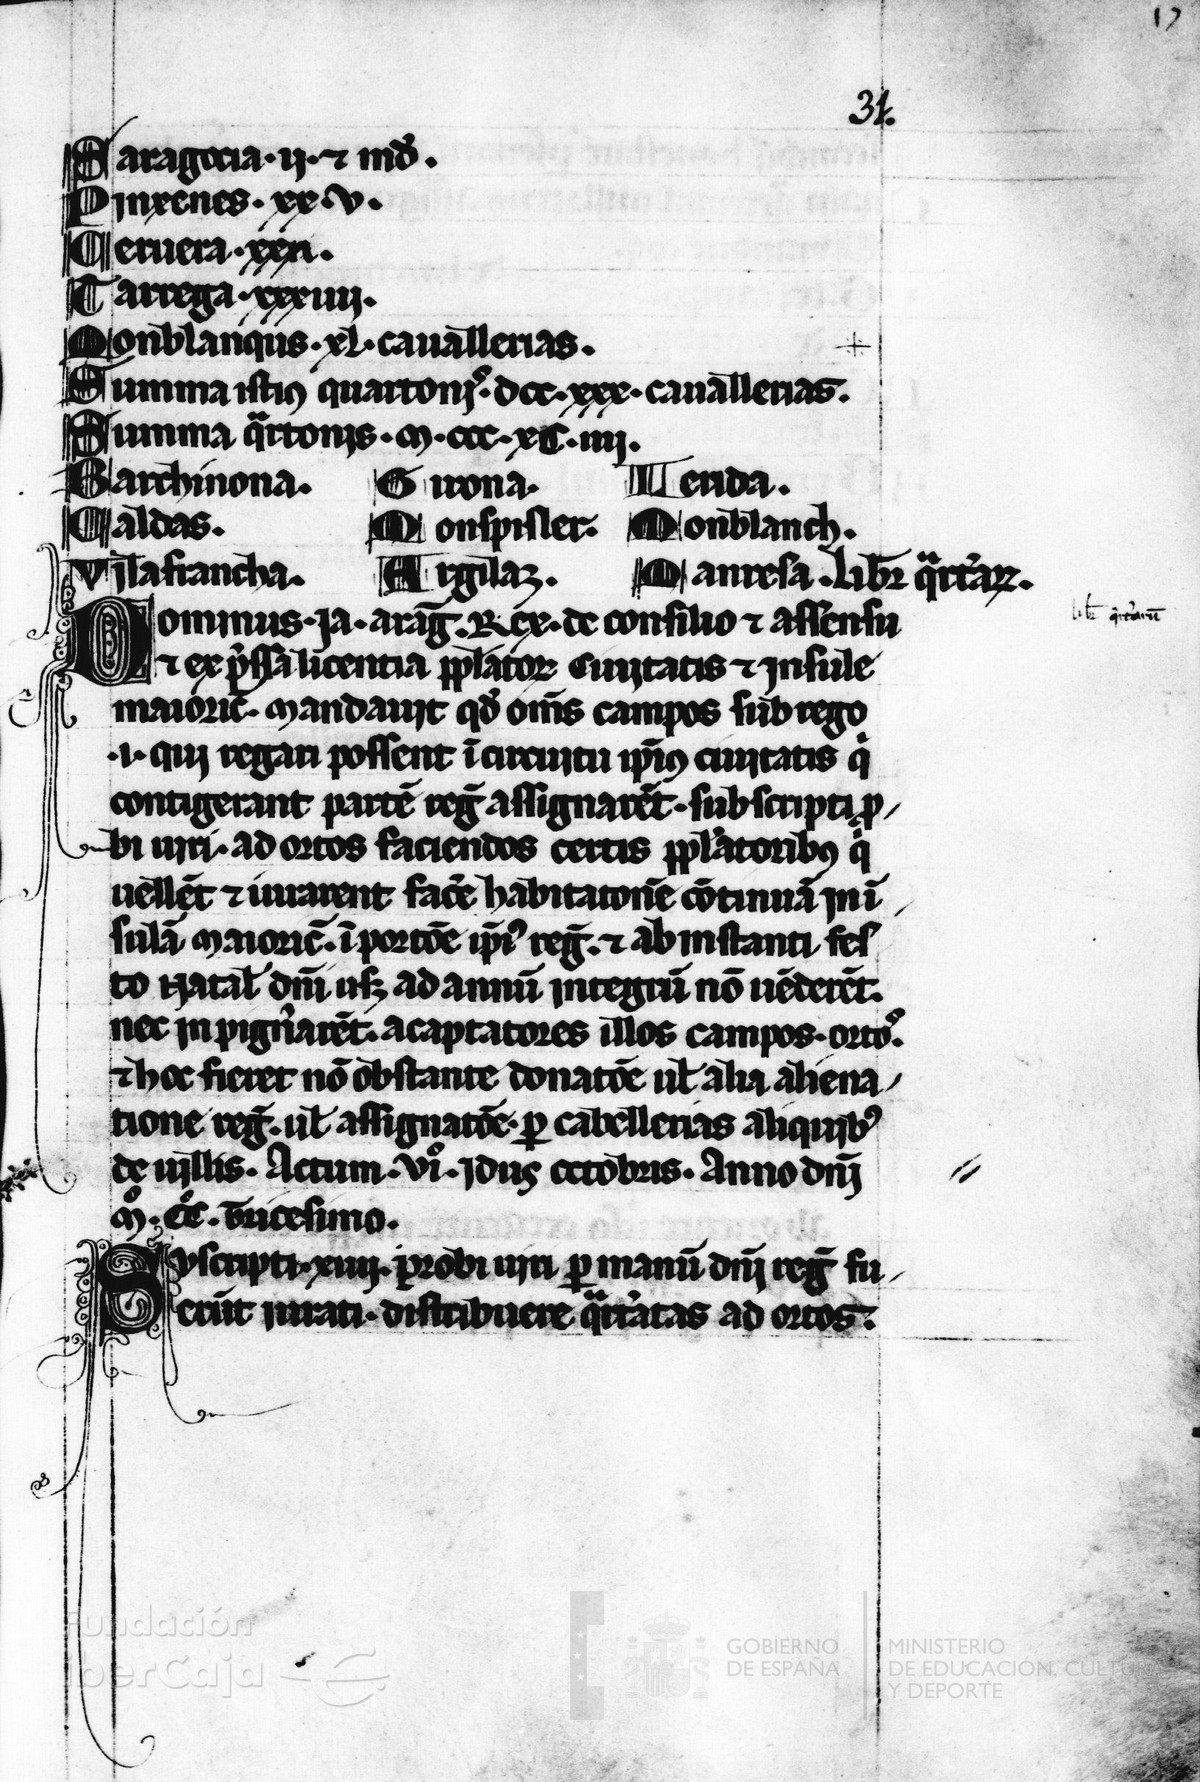 17
31.
Saragocia · ii · ⁊ md̃ .
Pinxenes · xx v .
Ceruera · xxii .
Tarrega · xxxiiii .
Monblanqus · xl · cauallerias .
Summa istiꝰ quartonjˢ · dcc · xxx · cauallerias .
Summa qᵃrtonis · m · ccc · xc · iiii .
Barchinona . Girona . Lerida .
Caldas . Monspisler . Monblanch .
Vilafrancha . Argilaz . Manresa . Libꝛ qᵃrtaꝝ .
Libꝛ qᵃrtarũ
Dominus · Ja · arag̃ . Rex · de consilio ⁊ assensu
⁊ ex p̃ssa licentia pp̱latoꝝ Ciuitatis ⁊ insule
maioric̃ · Mandauit qđ om̃s campos sub rego
· i · qui regari possent ĩ circuitu ip̃iꝰ ciuitatis q̇
contigerant partẽ reg̃ assignarẽt · subscripti p̱
bi uiri · ad ortos faciendos certis pp̱latoribꝰ q̇
uellẽt ⁊ iurarent fac̃e habitatioñe cõtinuã in ĩ
sulã Maioric̃ . ĩ portõe ip̃iˢ reg̃ . ⁊ ab instanti fes
to Natal̃ dñi usꝫ ad annũ integrũ nõ uẽderẽt .
nec inpign̾arẽt . acaptatores illos campos · ortoˢ .
⁊ hoc fieret nõ obstante donatõe ul̃ alia aliena
tione reg̃ . ul̃ assignatõe · ꝑ cabellerias aliquibꝰ
de uillis . Actum · viͦ · Jdus octobris . Anno dñj
mͦ . ccͦ . tricesimo .
Svscripti · xiiii · probi uiri ꝑ manũ dñj reg̃ fu
erũt iurati · distribuere qᵃrt̾atas ad ortos .
Fundación
iberCaja
GOBIERNO
DE ESPAÑA
MINISTERIO
DE EDUCACIÓN, CULTURA
Y DEPORTE